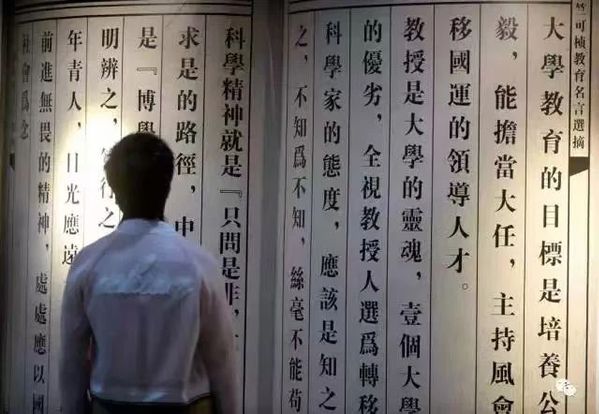 竺可楨教育名言選摘
大學教育的目標是培養公
毅，能擔當大任，主持風會
移國運的領導人才。
教授是大學的靈魂，壹個大學
的優劣，全視教授人選爲轉移
科學家的態度，應該是知之
之，不知爲不知，絲毫不能苟
科學精神就是『只問是非，
求是的路徑，中
是『博學
明辨之，篤行之
年青人，目光應遠
前進無畏的精神，處處應以國
社會爲念